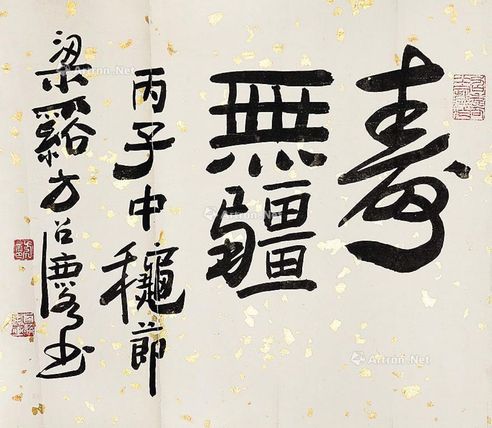 壽
無疆
丙子中穐節
梁谿方召麐书
Artron.Net
Artron.Net
Artron.Net